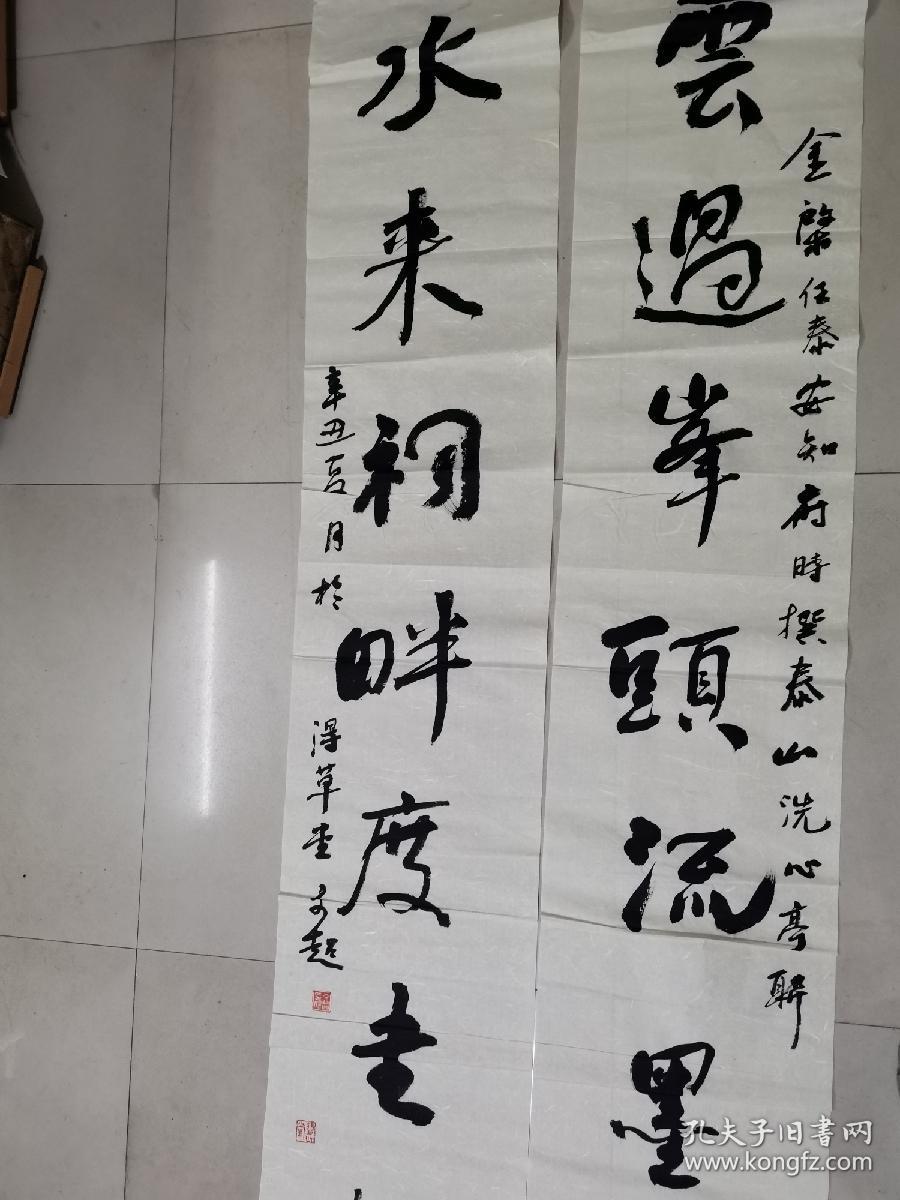 金棨任泰安知府時撰泰山洗心亭聯
雲過峯頭流墨
水来祠畔度書
辛丑夏月於
得草堂
超
孔夫子旧书网
www.kongfz.com